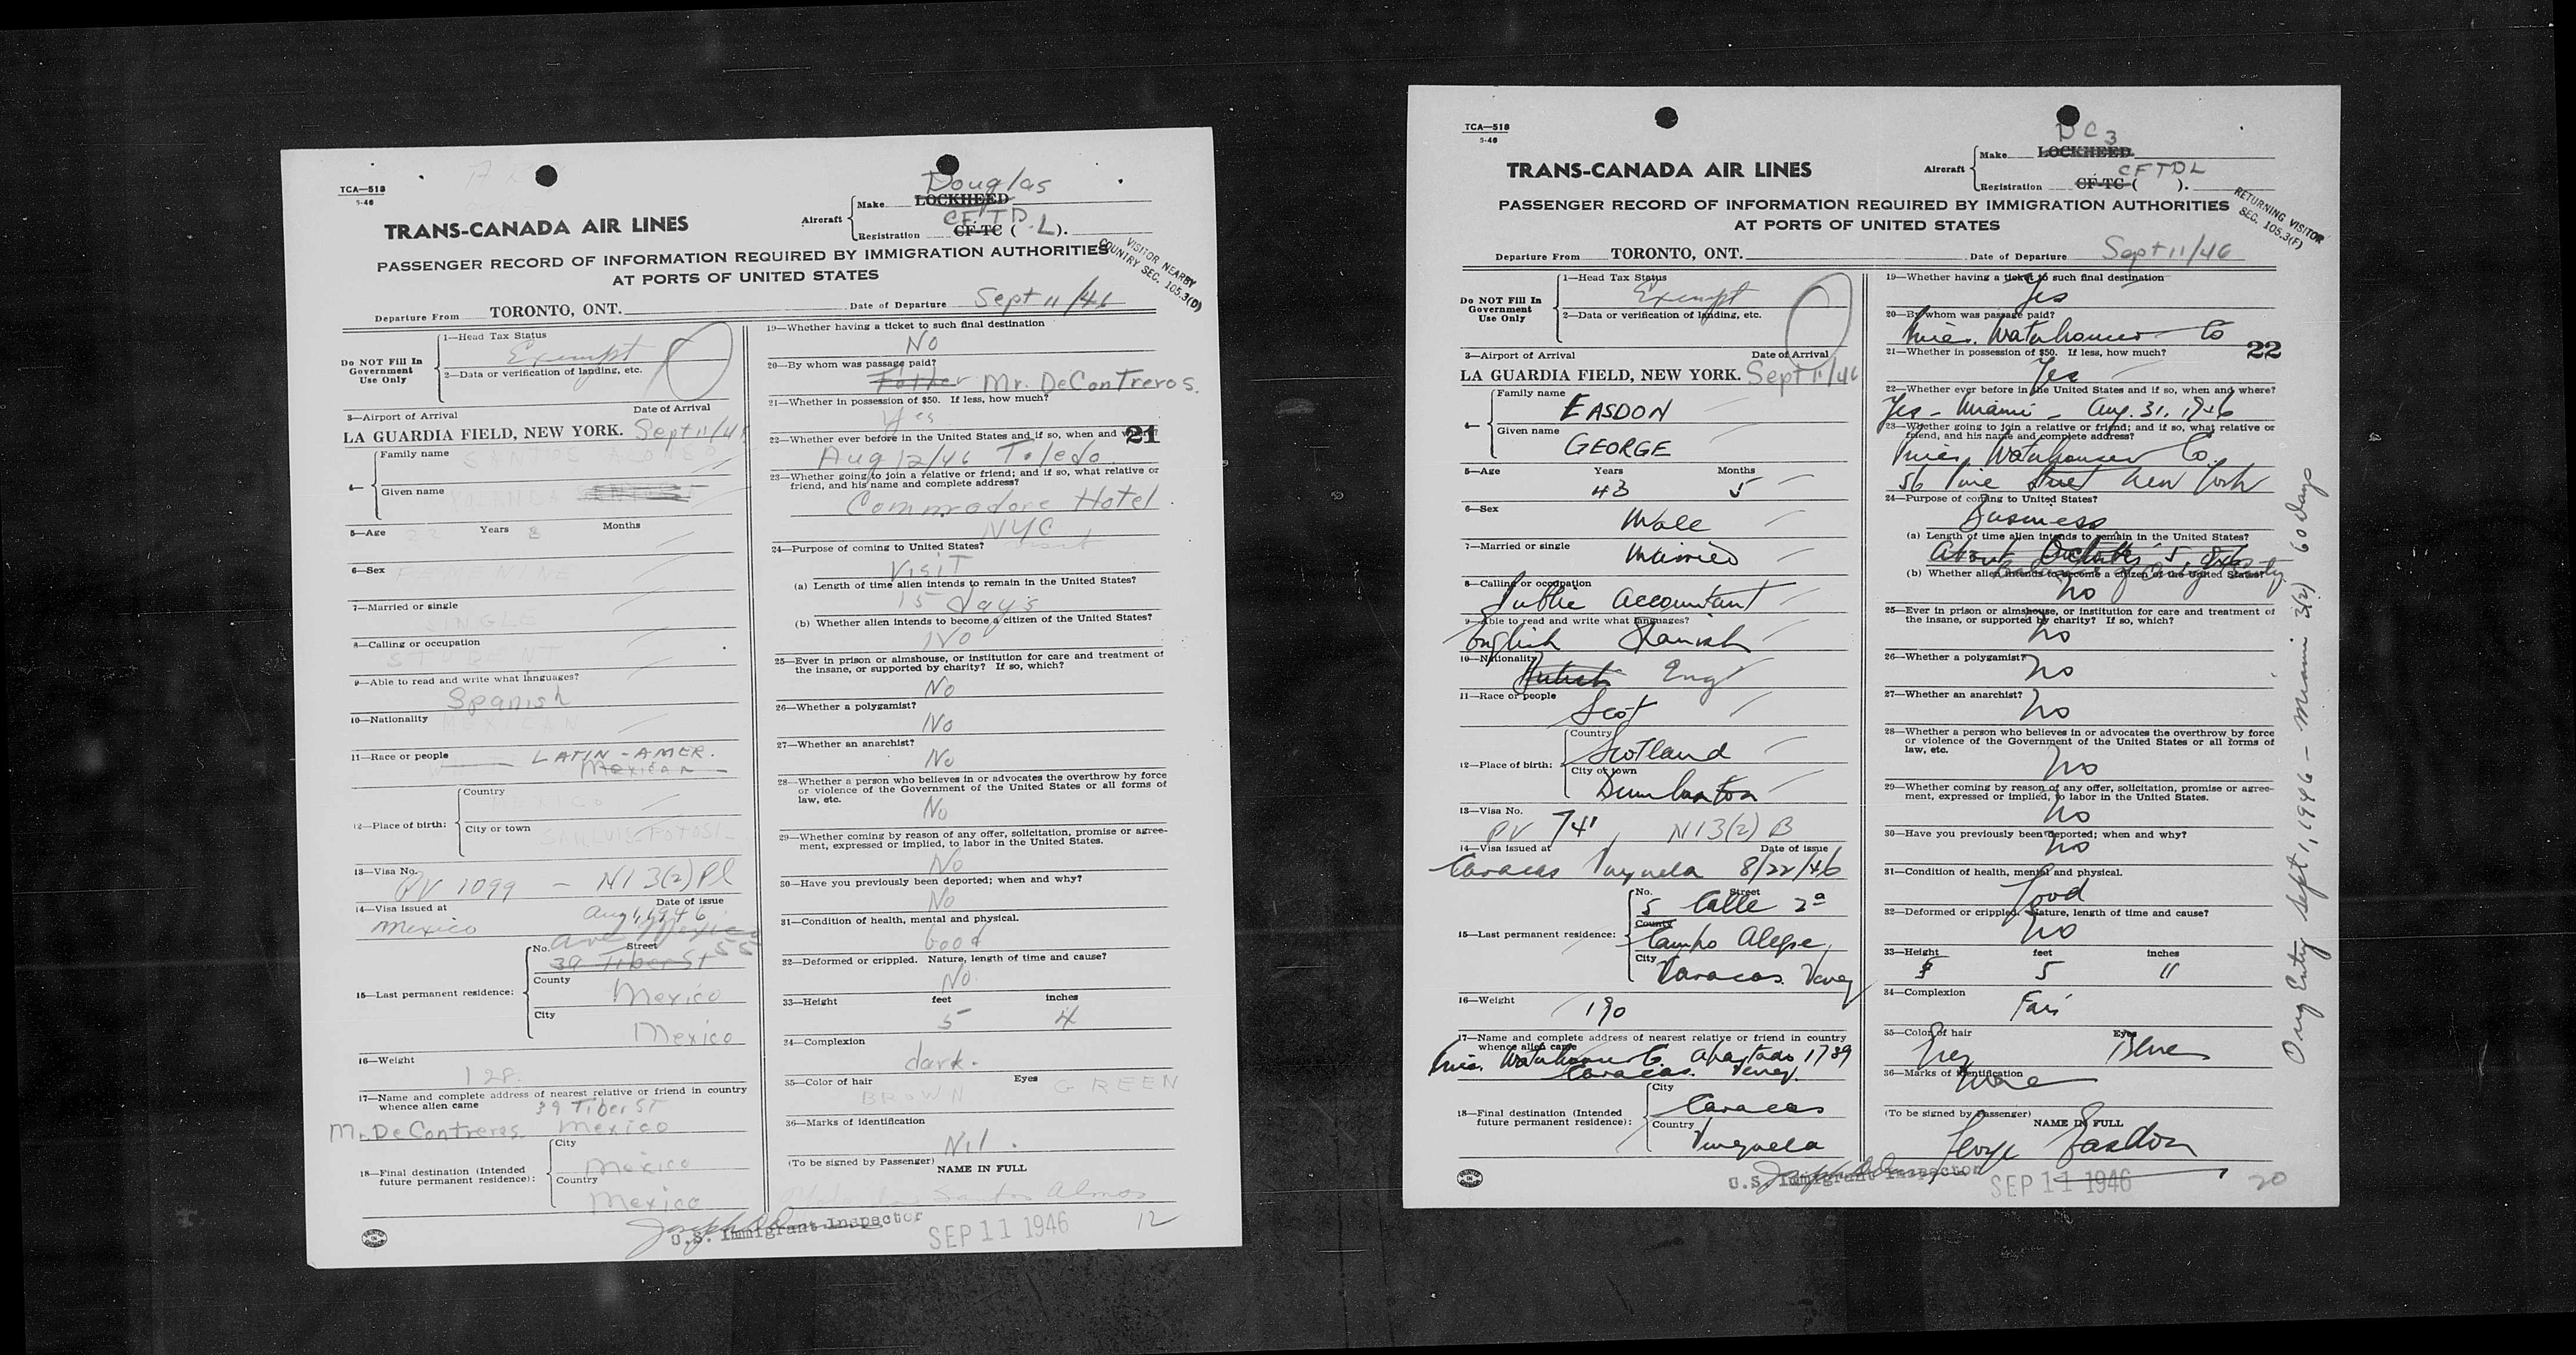 TCA—518
5-46
Douglas
Aircraft
Make LOCKHEED
CF.TD
Registration CF-TC ( .L).
TRANS-CANADA AIR LINES
PASSENGER RECORD OF INFORMATION REQUIRED BY IMMIGRATION AUTHORITIES
AT PORTS OF UNITED STATES
VISITOR NEARBY
COUNTRY SEC. 105.3(D)
Departure From TORONTO, ONT. Date of Departure Sept 11/46
Do NOT Fill In
Government
Use Only
1—Head Tax Status
Exempt
2—Data or verification of landing, etc.
3—Airport of Arrival Date of Arrival
LA GUARDIA FIELD, NEW YORK. Sept 11/46
4— Family name
Given name
5—Age 22 Years 8 Months
6—Sex
7—Married or single
SINGLE
8—Calling or occupation
STUDENT
9—Able to read and write what languages?
Spanish
10—Nationality
MEXICAN
11—Race or people LATIN-AMER.
Mexican
12—Place of birth:
Country
MEXICO
City or town
SAN LUIS POTOSI
13—Visa No.
PV 1099 — NI 3(2) Pl
14—Visa issued at Date of issue
Mexico Aug 1, 1946
15—Last permanent residence:
No. Street
Ave Mexico 55
39 Tiber St
County
Mexico
City
Mexico
16—Weight
128
17—Name and complete address of nearest relative or friend in country
whence alien came 39 Tiber ST
Mr. DeContreros Mexico
18—Final destination (Intended
future permanent residence):
City
Mexico
Country
Mexico
19—Whether having a ticket to such final destination
No
20—By whom was passage paid?
Father Mr. DeContreros.
21—Whether in possession of $50. If less, how much?
Yes
22—Whether ever before in the United States and if so, when and where?
21
Aug 12/46 Toledo
23—Whether going to join a relative or friend; and if so, what relative or
friend, and his name and complete address?
Commodore Hotel
NYC
24—Purpose of coming to United States?
Visit
(a) Length of time alien intends to remain in the United States?
15 days
(b) Whether alien intends to become a citizen of the United States?
No
25—Ever in prison or almshouse, or institution for care and treatment of
the insane, or supported by charity? If so, which?
No
26—Whether a polygamist?
No
27—Whether an anarchist?
No
28—Whether a person who believes in or advocates the overthrow by force
or violence of the Government of the United States or all forms of
law, etc.
No
29—Whether coming by reason of any offer, solicitation, promise or agree-
ment, expressed or implied, to labor in the United States.
No
30—Have you previously been deported; when and why?
No
31—Condition of health, mental and physical.
Good
32—Deformed or crippled. Nature, length of time and cause?
No.
33—Height feet inches
5 4
34—Complexion
dark.
35—Color of hair Eyes GREEN
BROWN
36—Marks of identification
Nil.
(To be signed by Passenger) NAME IN FULL
U.S. Immigrant Inspector
SEP 11 1946
12
TCA—518
5-46
DC3
Aircraft
Make LOCKHEED.
CFTDL
Registration CF-TC ( ).
TRANS-CANADA AIR LINES
PASSENGER RECORD OF INFORMATION REQUIRED BY IMMIGRATION AUTHORITIES
AT PORTS OF UNITED STATES
RETURNING VISITOR
SEC. 105.3(F)
Departure From TORONTO, ONT. Date of Departure Sept 11/46
Do NOT Fill In
Government
Use Only
1—Head Tax Status
Exempt
2—Data or verification of landing, etc.
3—Airport of Arrival Date of Arrival
LA GUARDIA FIELD, NEW YORK. Sept 11/46
4— Family name
EASDON
Given name
GEORGE
5—Age Years Months
43 5
6—Sex
Male
7—Married or single
Married
8—Calling or occupation
Public Accountant
9—Able to read and write what languages?
English Spanish
10—Nationality
British Eng
11—Race or people
Scot
12—Place of birth:
Country
Scotland
City or town
Dumbarton
13—Visa No.
PV 741 NI 3(2) B
14—Visa issued at Date of issue
Caracas Venezuela 8/22/46
15—Last permanent residence:
No. Street
5 Calle 2a
County
Campo Alegre,
City
Caracas. Venez
16—Weight
190
17—Name and complete address of nearest relative or friend in country
whence alien came
Price, Waterhouse Co. Apartado 1789
Caracas. Venez.
18—Final destination (Intended
future permanent residence):
City
Caracas
Country
Venezuela
19—Whether having a ticket to such final destination
Yes
20—By whom was passage paid?
Price, Waterhouse Co
21—Whether in possession of $50. If less, how much?
22
Yes
22—Whether ever before in the United States and if so, when and where?
Yes - Miami - Aug. 31, 1946
23—Whether going to join a relative or friend; and if so, what relative or
friend, and his name and complete address?
Price, Waterhouse Co.,
56 Pine Street New York
24—Purpose of coming to United States?
Business
(a) Length of time alien intends to remain in the United States?
About October 5
(b) Whether alien intends to become a citizen of the United States?
No
25—Ever in prison or almshouse, or institution for care and treatment of
the insane, or supported by charity? If so, which?
No
26—Whether a polygamist?
No
27—Whether an anarchist?
No
28—Whether a person who believes in or advocates the overthrow by force
or violence of the Government of the United States or all forms of
law, etc.
No
29—Whether coming by reason of any offer, solicitation, promise or agree-
ment, expressed or implied, to labor in the United States.
No
30—Have you previously been deported; when and why?
No
31—Condition of health, mental and physical.
Good
32—Deformed or crippled. Nature, length of time and cause?
No
33—Height feet inches
5 11
34—Complexion
Fair
35—Color of hair Eyes
Grey Blue
36—Marks of identification
None
(To be signed by Passenger) NAME IN FULL
George Easdon
U.S. Immigrant Inspector
SEP 11 1946
20
Orig Entry Sept 1, 1946 - Miami 3(2) 60 days